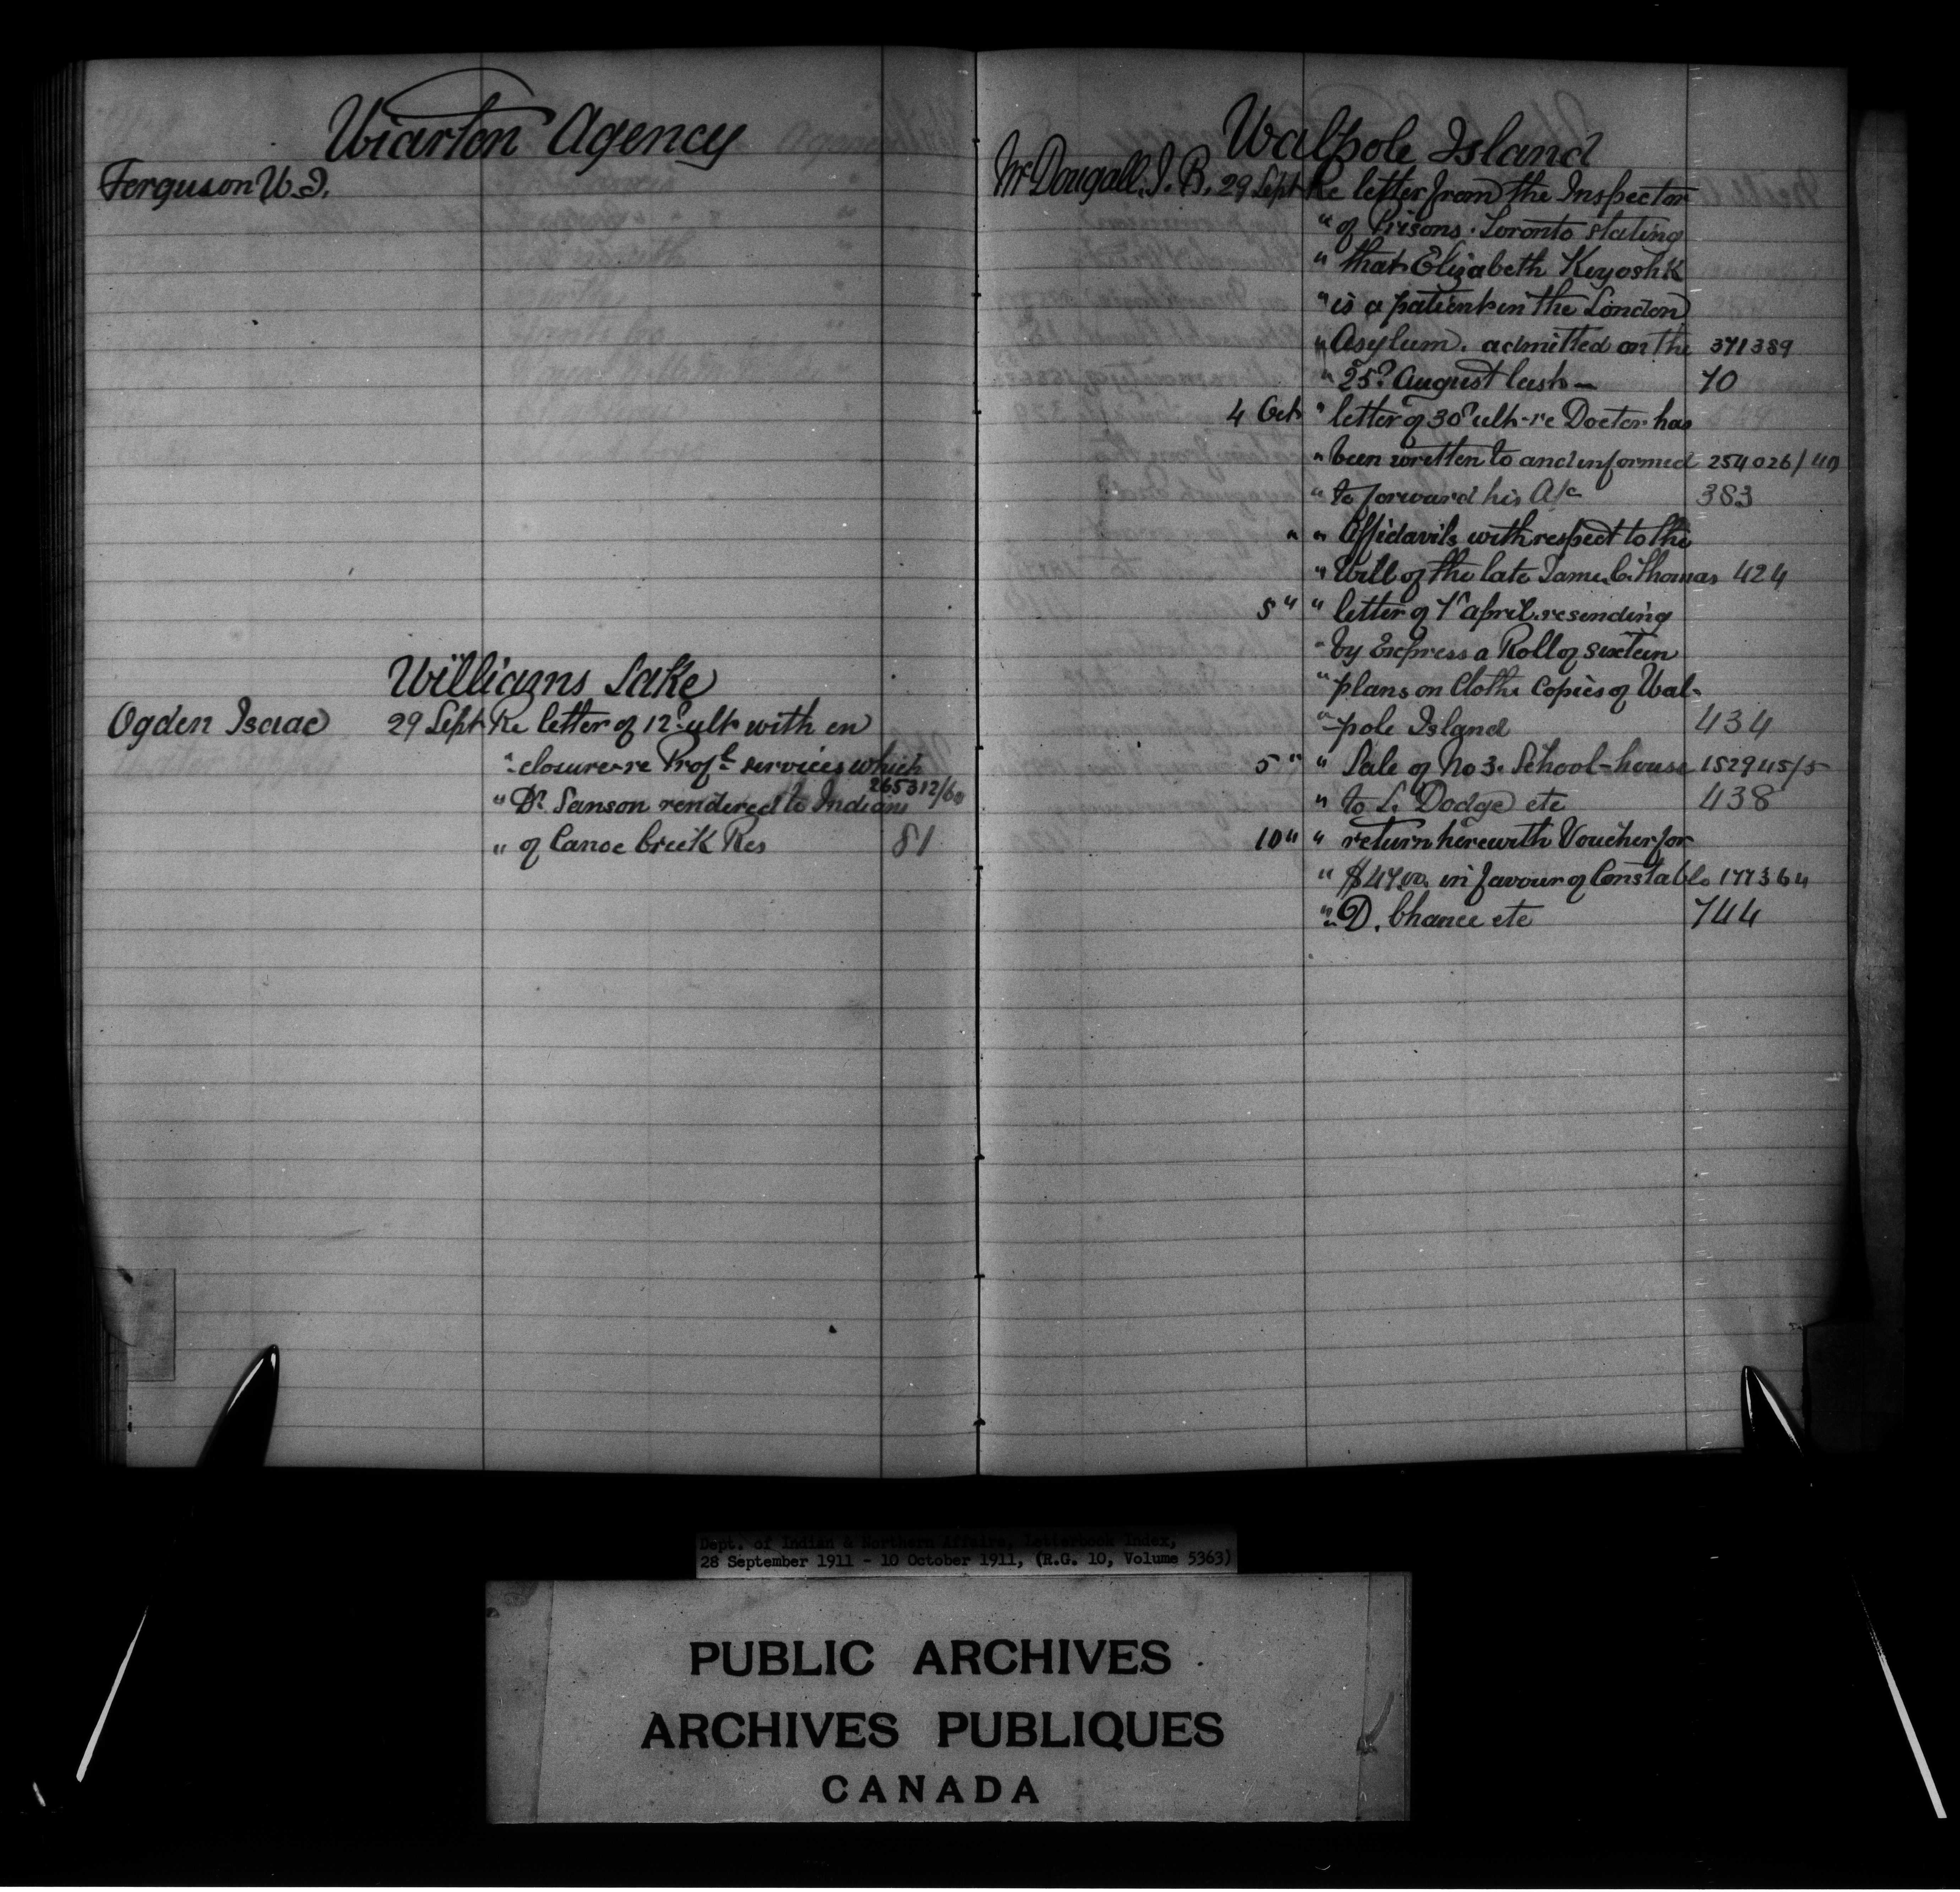 Wiarton Agency
Ferguson W. I.
Williams Lake
Ogden Isaac 29 Sept Re letter of 12" ult with en
" closure re Prof'l services which
265312/60
" Dr. Sanson rendered to Indians
" of Canoe Creek Res 81
Walpole Island
McDougall, J. B. 29 Sept Re letter from the Inspector
" of Prisons. Toronto stating
" that Elizabeth Kiyoshk
" is a patient in the London
" Asylum. admitted on the 371389
" 25" August last — 70
4 Oct " letter of 30" ult - re Doctor has
" been written to and informed 254026/40
" to forward his A/c 383
" " Affidavits with respect to the
" Will of the late James C. Thomas 424
5 " " letter of 1st April. re sending
" by Express a Roll of sixteen
" plans on Cloth Copies of Wal-
" pole Island 434
5 " " Sale of No 3. School-house 152945/5
" to L. Dodge etc 438
10 " " return herewith Voucher for
" $47.00 in favour of Constable 177364
" D. Chance etc 744
Dept. of Indian & Northern Affairs, Letterbook Index,
28 September 1911 - 10 October 1911, (R.G. 10, Volume 5363)
PUBLIC ARCHIVES
ARCHIVES PUBLIQUES
CANADA